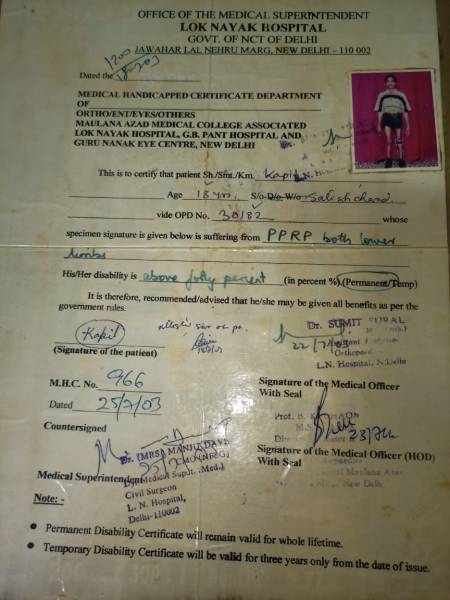 OFFICE OF THE MEDICAL SUPERINTENDENT
LOK NAYAK HOSPITAL
GOVT. OF NCT OF DELHI
JAWAHAR LAL NEHRU MARG, NEW DELHI – 110 002
Dated the
MEDICAL HANDICAPPED CERTIFICATE DEPARTMENT
OF
ORTHO/ENT/EYES/OTHERS
MAULANA AZAD MEDICAL COLLEGE ASSOCIATED
LOK NAYAK HOSPITAL, G.B. PANT HOSPITAL AND
GURU NANAK EYE CENTRE, NEW DELHI
This is to certify that patient Sh./Smt./Km. Kapil
Age 18 yrs. S/o D/o W/o Satish chand
vide OPD No. 30/82 whose
specimen signature is given below is suffering from PPRP both lower
limbs
His/Her disability is above forty percent (in percent %) (Permanent/Temp)
It is therefore, recommended/advised that he/she may be given all benefits as per the
government rules.
Kapil
(Signature of the patient)
Dr. SUMIT
22/7/03
Orthopaed
L.N. Hospital, N.Delhi
M.H.C. No. 966
Signature of the Medical Officer
With Seal
Dated 25/7/03
Countersigned
Dr. (MRS) MANJU DAVE
Medical Superintendent
Dy. Medical Supdt. (Med.)
Civil Surgeon
L. N. Hospital,
Delhi-110002
Signature of the Medical Officer (HOD)
With Seal
Note: -
• Permanent Disability Certificate will remain valid for whole lifetime.
• Temporary Disability Certificate will be valid for three years only from the date of issue.